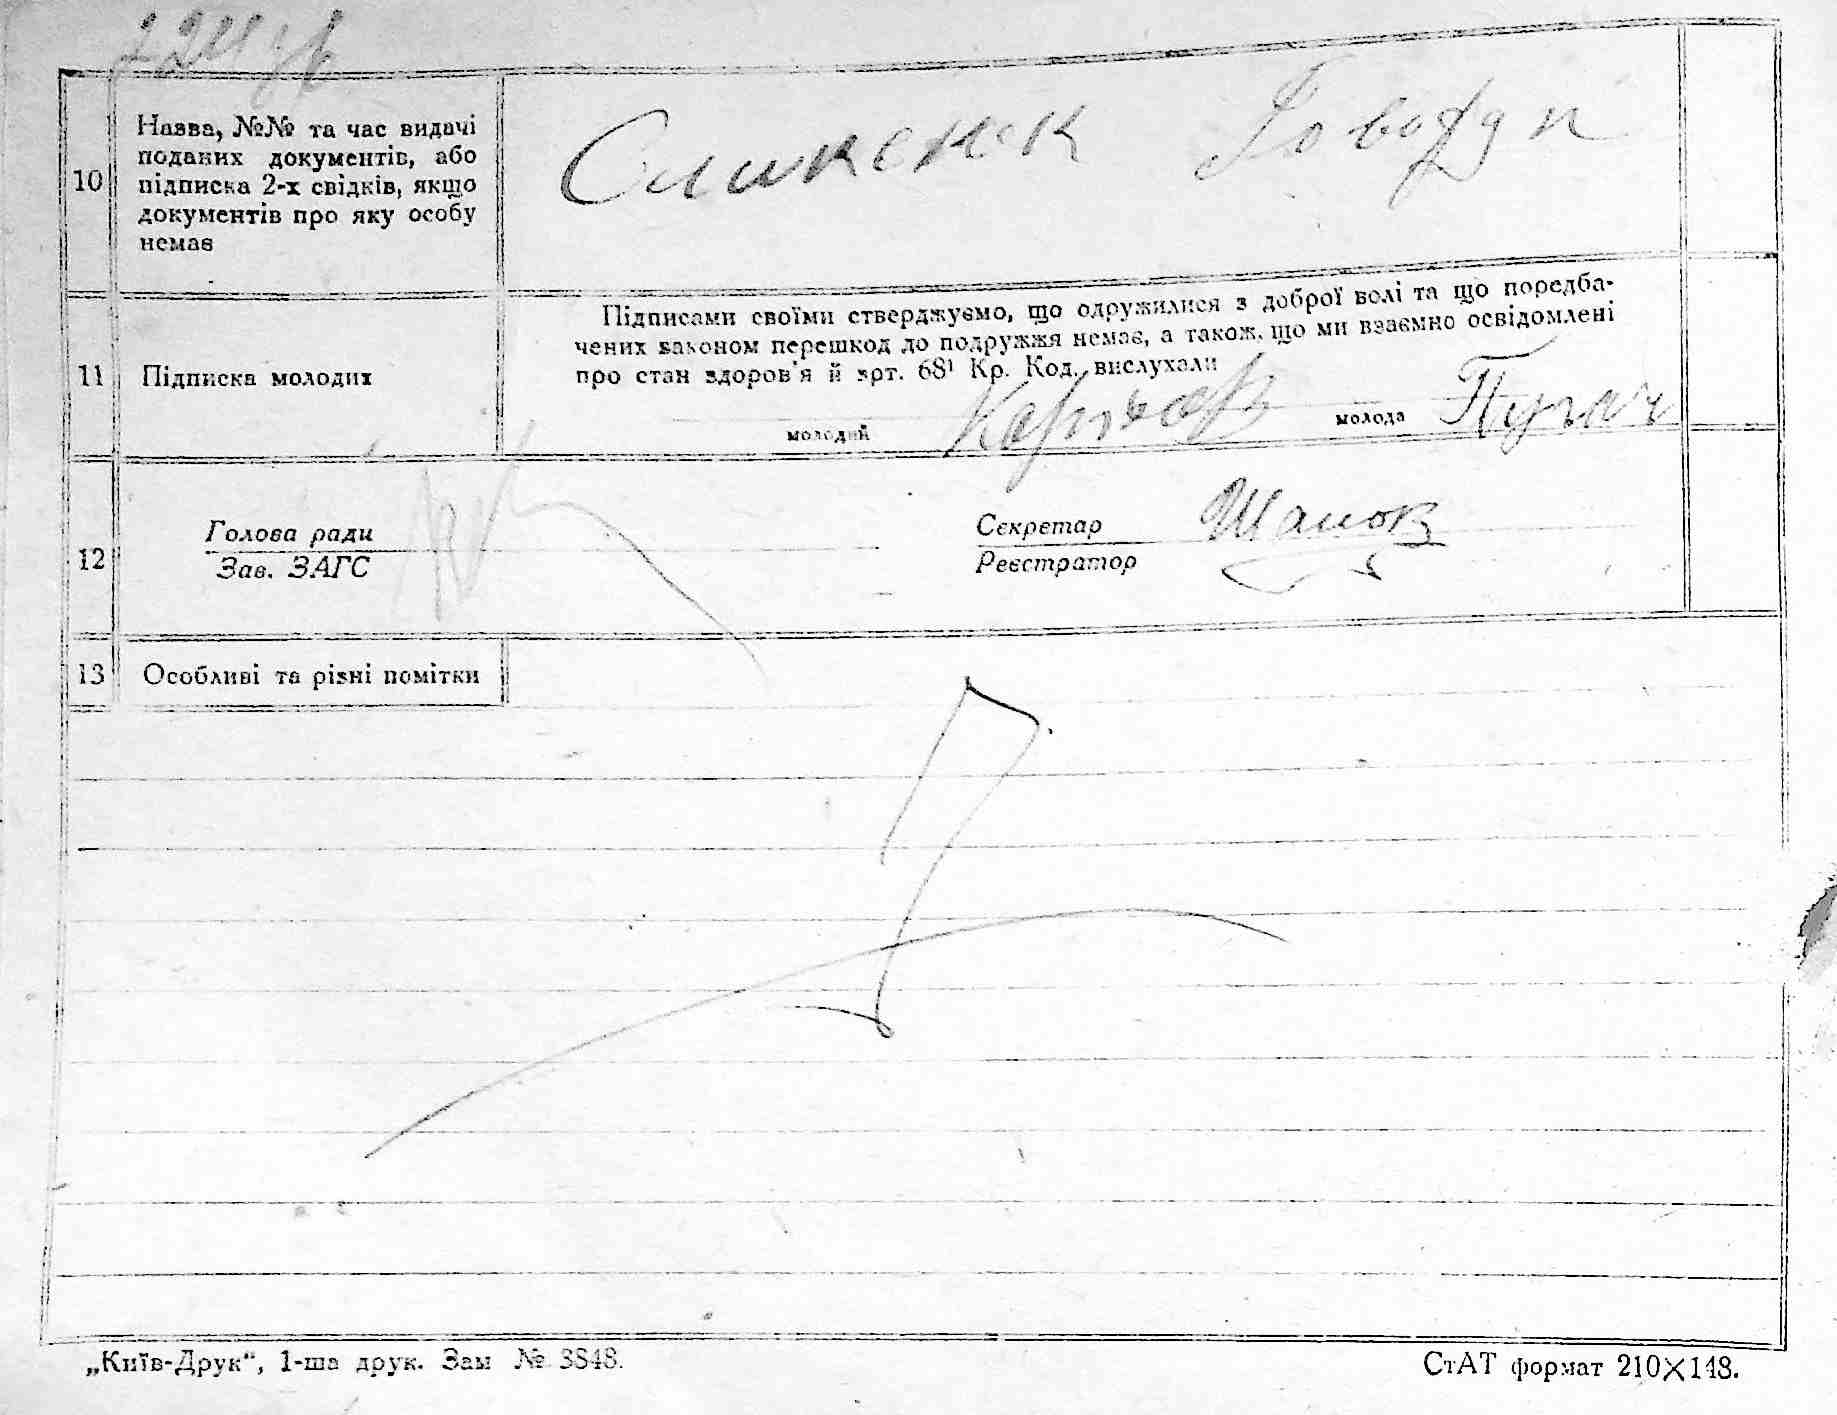 10
Назва, №№ та час видачі
поданих документів, або
підписка 2-х свідків, якщо
документів про яку особу
немає
11
Підписка молодих
Підписами своїми стверджуємо, що одружилися з доброї волі та що поредба-
чених законом перешкод до подружжя немає, а також, що ми взаємно освідомлені
про стан здоров'я й арт. 68¹ Кр. Код. вислухали
молодий
молода Пугач
12
Голова ради
Зав. ЗАГС
Секретар
Реєстратор
13
Особливі та різні помітки
„Київ-Друк“, 1-ша друк. Зам № 3848.
СтАТ формат 210×148.